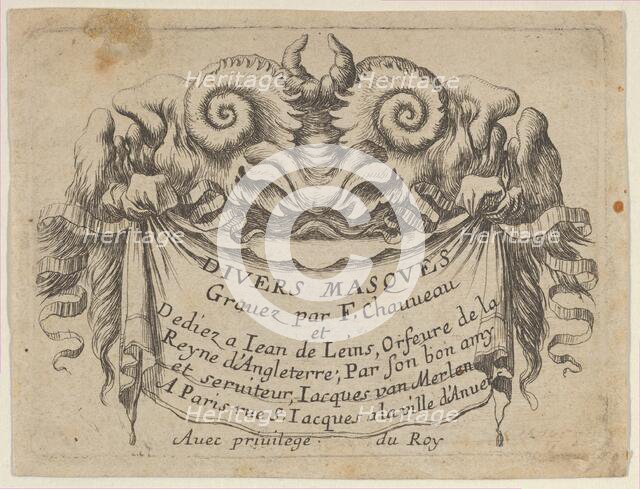 DIVERS MASQVES
Grauez par F. Chauueau
et
Dediez a Iean de Lems, Orfeure de la
Reyne d'Angleterre, Par son bon amy
et seruiteur, Iacques van Merlen
A Paris rue S. Iacques a la ville d'Anuers
Auec priuilege du Roy
Heritage Heritage Heritage
Heritage Heritage Heritage
Heritage Heritage
Heritage Heritage Heritage
Heritage Heritage